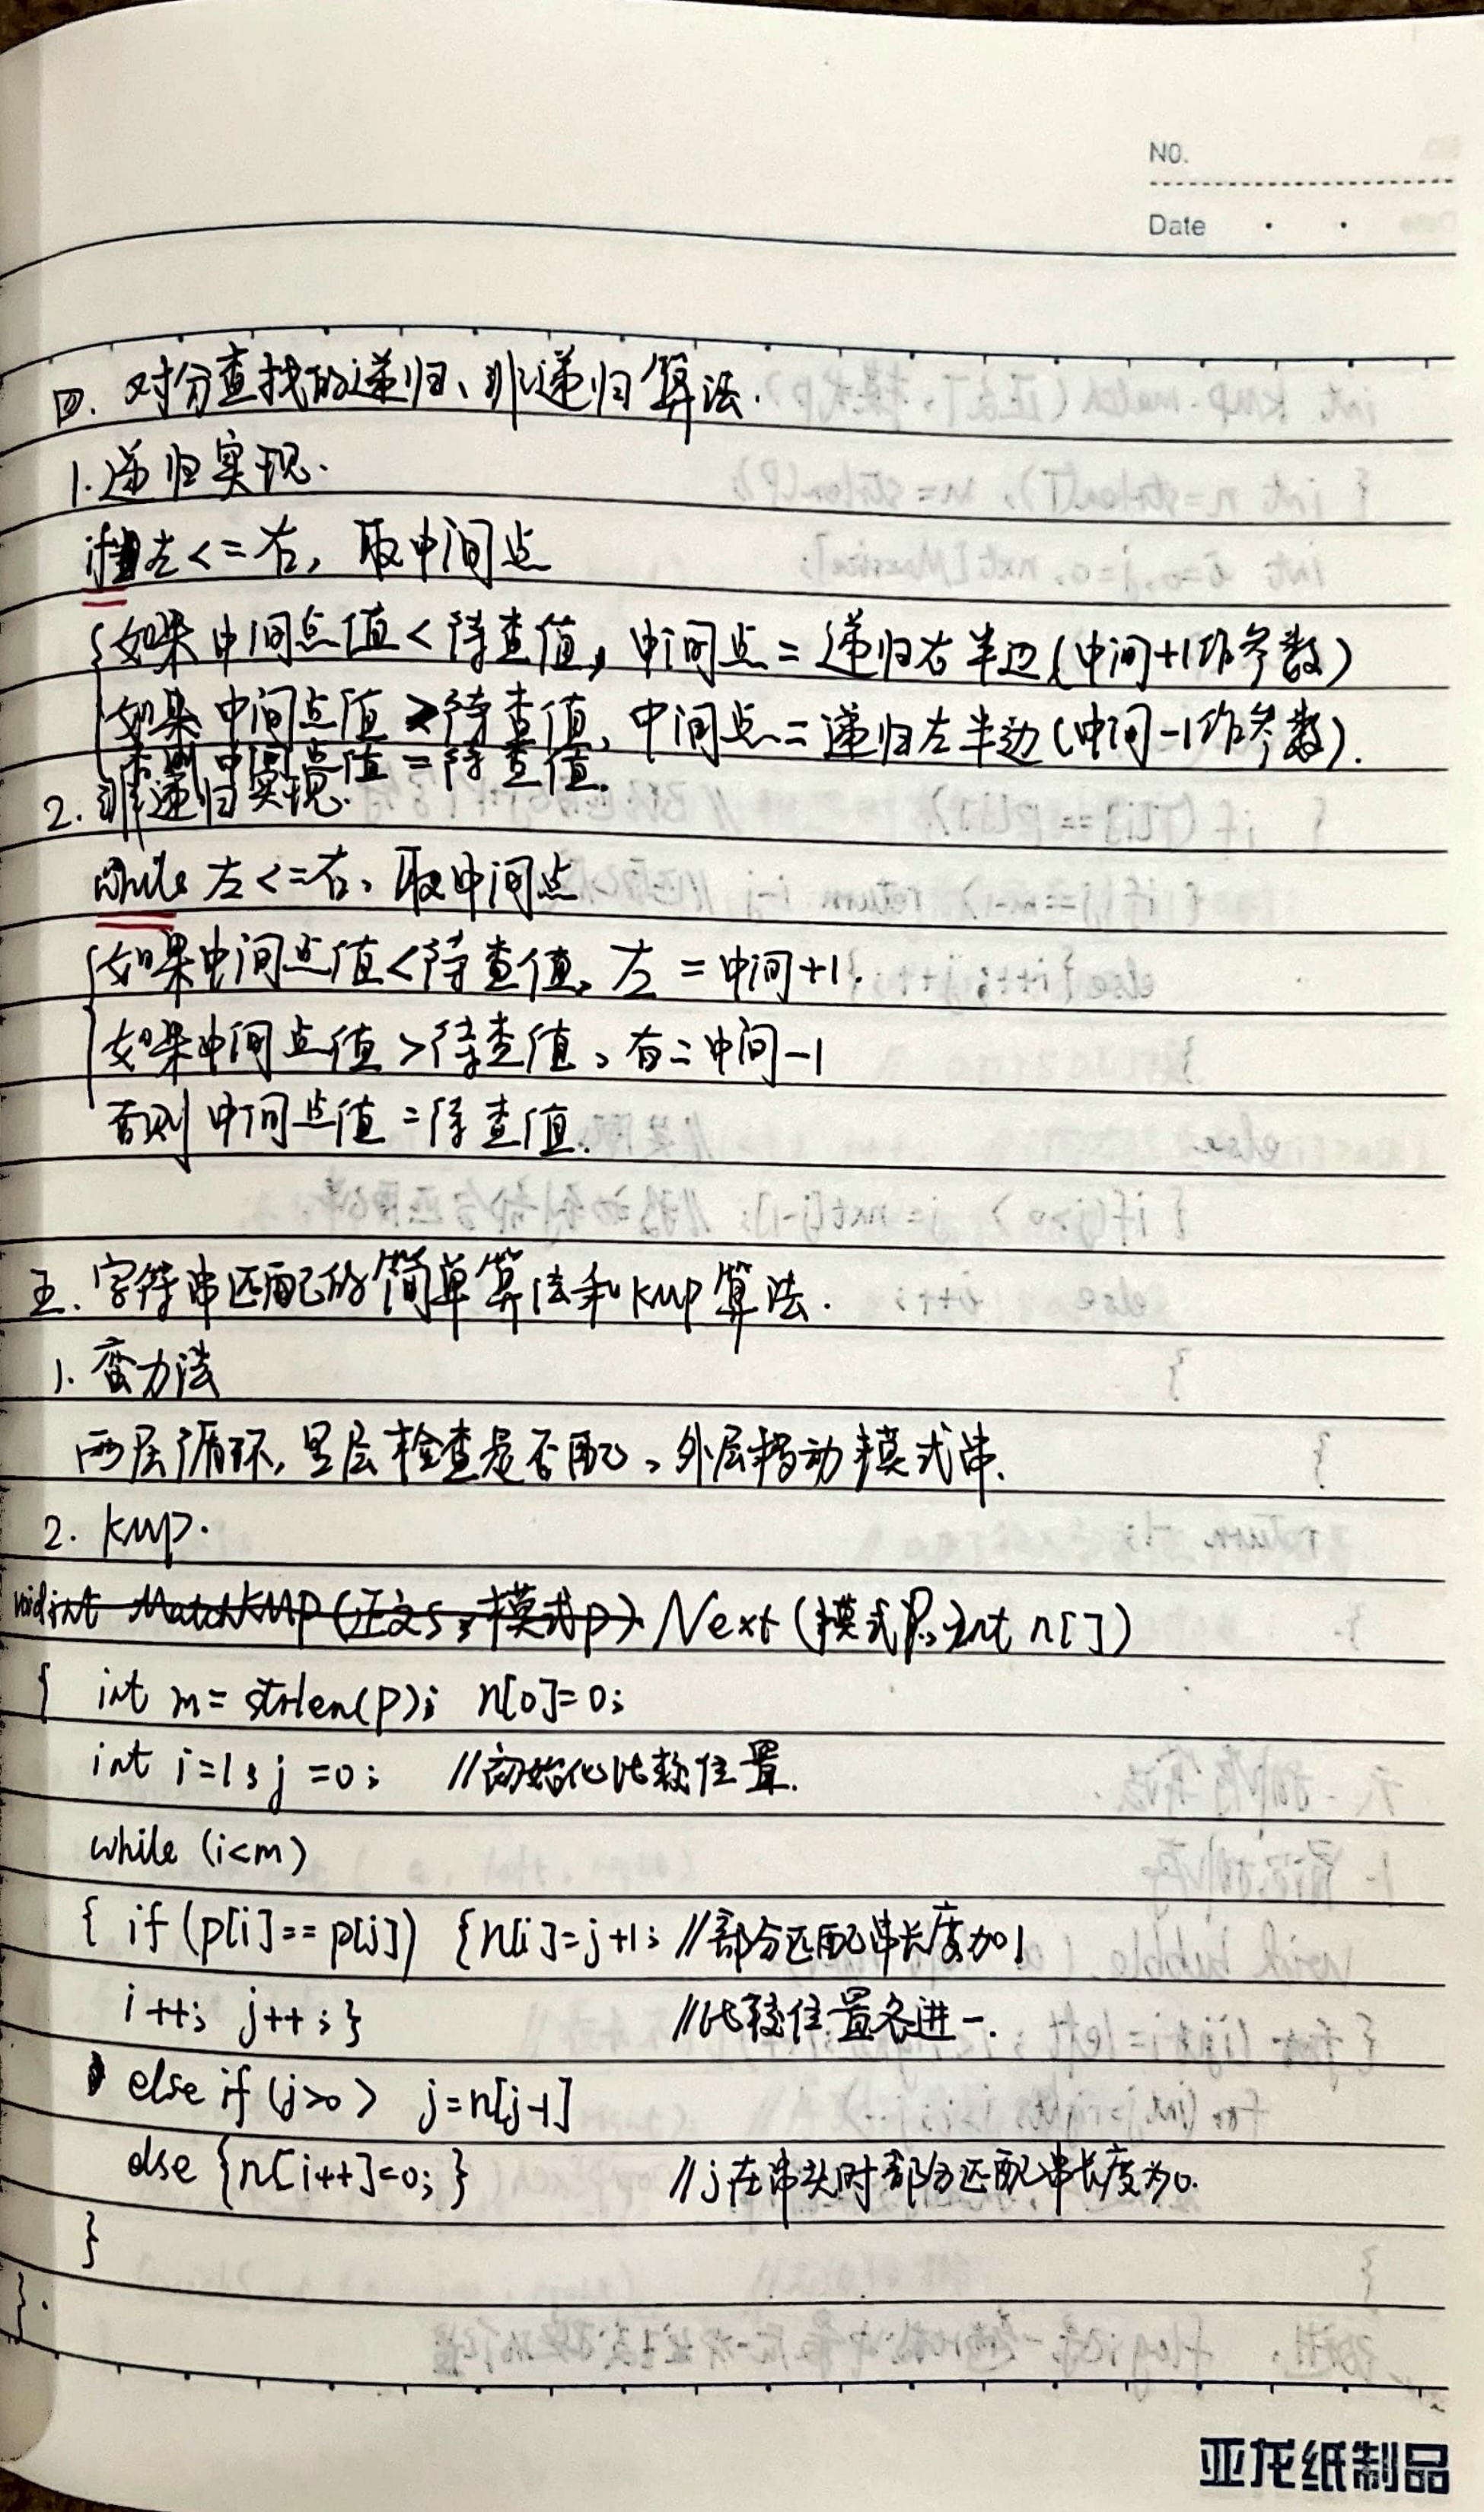 NO.
Date
四. 对分查找的递归、非递归算法.
1.递归实现.
if 左<=右, 取中间点
{如果中间点值<待查值, 中间点=递归右半边(中间+1作参数)
如果中间点值>待查值, 中间点=递归左半边(中间-1作参数).
否则中间点值=待查值.
2. 非递归实现.
while 左<=右, 取中间点
{如果中间点值<待查值, 左=中间+1.
如果中间点值>待查值, 右=中间-1
否则中间点值=待查值.
五. 字符串匹配的简单算法和KMP算法.
1. 蛮力法
两层循环, 里层检查是否配, 外层移动模式串.
2. KMP.
void int MatchKMP(正文S, 模式P) Next(模式P, int n[])
{ int m = strlen(P); n[0]=0;
int i=1, j=0; //初始化比较位置.
while (i<m)
{ if (p[i]==p[j]) {n[i]=j+1; //部分匹配串长度加1
i++; j++;} //比较位置各进一.
else if (j>0) j=n[j-1]
else {n[i++]=0;} //j在串头时部分匹配串长度为0.
}
}.
亚龙纸制品